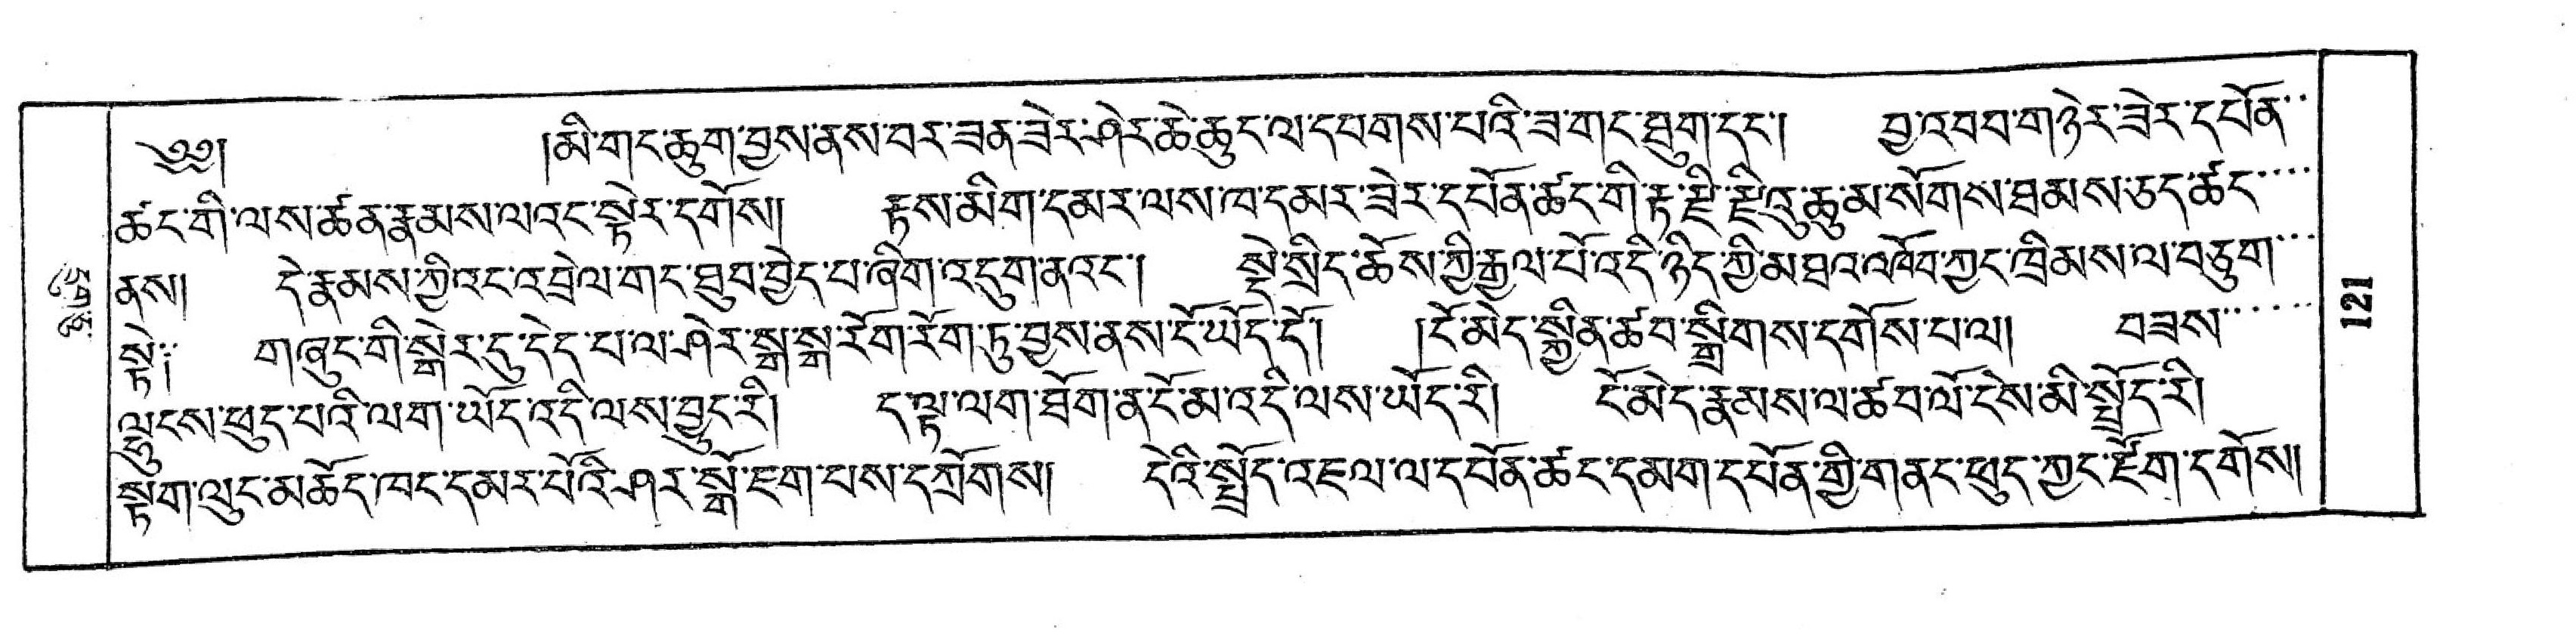 ༄༅། །མི་གང་ཆུག་བྱས་ནས་བར་ཟན་ཟེར་ཤེར་ཆེ་ཆུང་ལ་དཔགས་པའི་ཟ་གང་ཐུག་དང་། བྱ་འབབ་གཉེར་ཟེར་དཔོན་
ཚང་གི་ལས་ཚན་རྣམས་ལའང་སྟེར་དགོས། རྟས་མིག་དམར་ལས་ཁ་དམར་ཟེར་དཔོན་ཚང་གི་རྟ་རྫི་རྫིའུ་ཆུམ་སོགས་ཐམས་ཅད་ཚང་
ནས། དེ་རྣམས་ཀྱིའང་འབྲེལ་གང་ཐུབ་བྱེད་པ་ཞིག་འདུག་ནའང་། སྡེ་སྲིད་ཆོས་ཀྱི་རྒྱལ་པོ་འདི་ཉིད་ཀྱི་མཐའ་འཁོབ་ཀྱང་ཁྲིམས་ལ་བཅུག་
སྟེ༔ གཞུང་གི་སྒེར་དུ་དེད་པ་ལ་ཤེར་སྒྲ་སྒྲ་རོག་རོག་ཏུ་བྱས་ནས་ངོ་ཡོད་དོ། །ངོ་མེད་སྐྱིན་ཚབ་སྒྲིགས་དགོས་པ་ལ། བཟས་
ལྷུངས་ཕུད་པའི་ལག་ཡོད་འདི་ལས་བྱུང་རི། ད་ལྟ་ལག་ཐོག་ན་ངོ་མ་འདི་ལས་ཡོད་རི། ངོ་མེད་རྣམས་ལ་ཚབ་ལོ་ངེས་མི་སྤྲོད་རི།
སྟག་ལུང་མཆོད་ཁང་དམར་པོའི་ཤར་སྒོ་ཇག་པས་དཀྲོགས། དེའི་སྤྲོད་འཇལ་ལ་དཔོན་ཚང་དམག་དཔོན་གྱི་གནང་ཕུད་ཀྱང་རྫོག་དགོས།
121